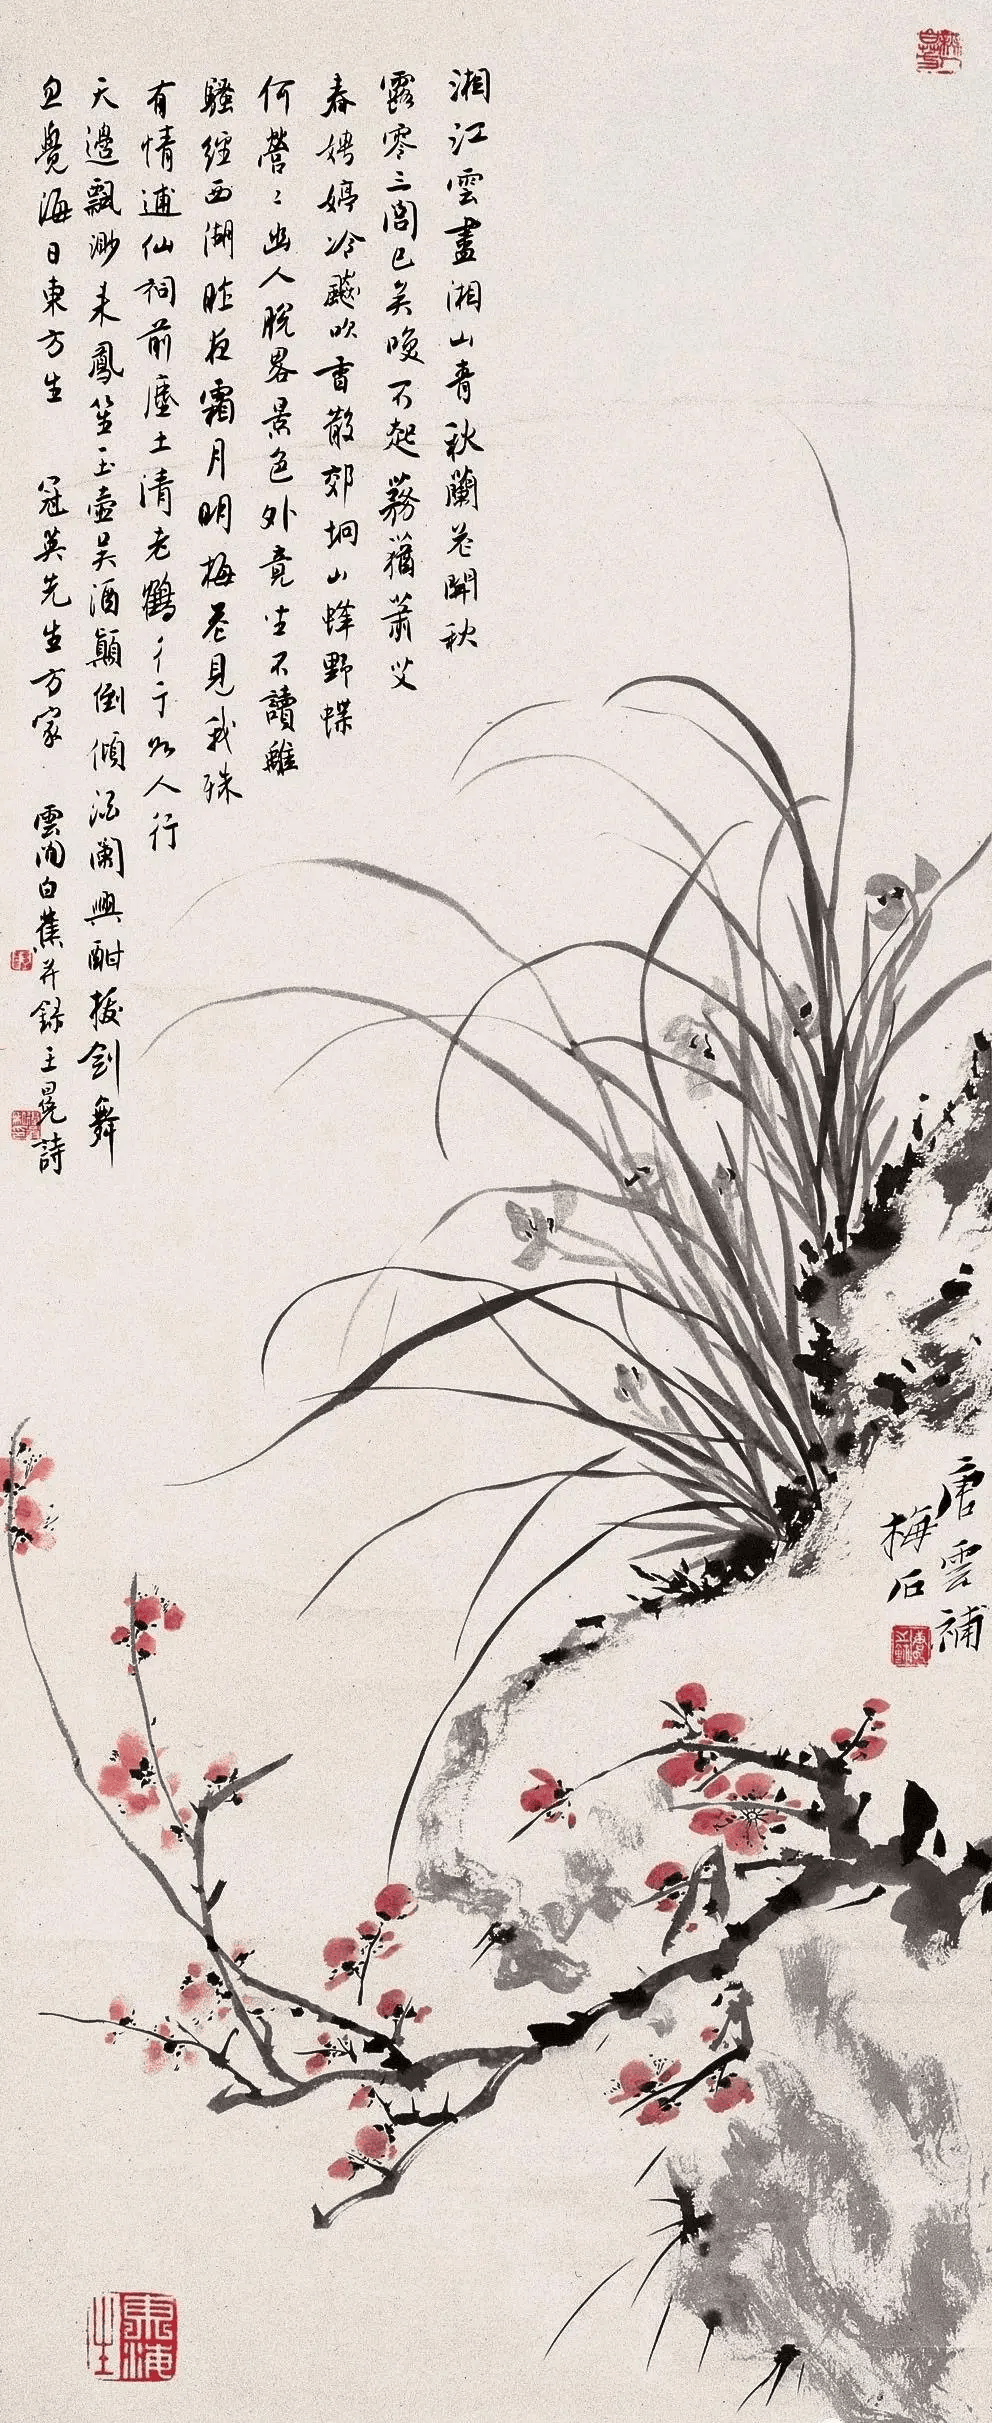 湘江雲盡湘山青秋蘭花開秋
露零三閭已矣喚不起蕕蕭艾
春娉婷冷飈吹香散郊坰山蜂野蝶
何營〻幽人脫畧景色外竟坐不讀離
騷經西湖昨夜霜月明梅花見我殊
有情逋仙祠前塵土清老鶴彳亍如人行
天邊飄渺来鳳笙玉壺吴酒顛倒傾酒闌興酣拔劍舞
忽覺海日東方生 冠英先生方家 雲间白蕉并録王冕詩
唐雲補
梅石
東海
生